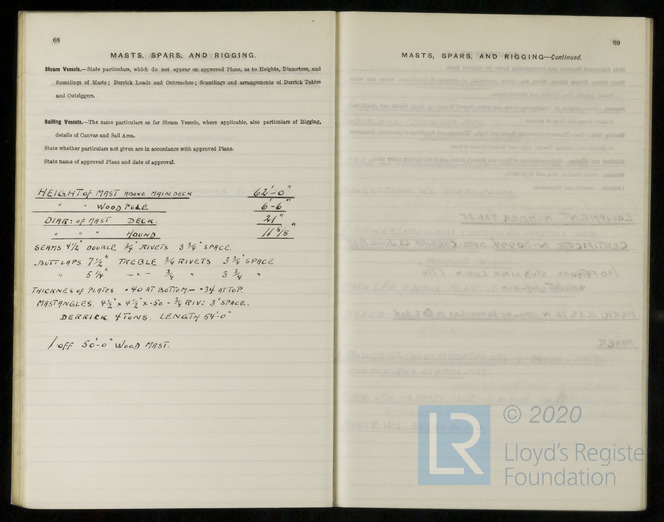 68
MASTS, SPARS, AND RIGGING.
Steam Vessels.—State particulars, which do not appear on approved Plans, as to Heights, Diameters, and
Scantlings of Masts; Derrick Loads and Outreaches; Scantlings and arrangements of Derrick Tables
and Outriggers.
Sailing Vessels.—The same particulars as for Steam Vessels, where applicable, also particulars of Rigging,
details of Canvas and Sail Area.
State whether particulars not given are in accordance with approved Plans.
State name of approved Plans and date of approval.
HEIGHT OF MAST ABOVE MAIN DECK 62'-0"
" " WOOD POLE 6'-6"
DIAR: OF MAST DECK. 21"
" " " HOUND
SEAMS 4½" DOUBLE ¾" RIVETS 3¾" SPACE.
BUTT LAPS 7½" TREBLE ¾ RIVETS 3¾" SPACE
" 5¼" -"- ¾ " 3¾ "
THICKNES OF PLATES ·40 AT BOTTOM — ·34 AT TOP.
MAST ANGLES. 4½" x 4½" x ·50 - ¾ RIV: 3" SPACE.
DERRICK 4 TONS. LENGTH 54'-0"
1 OFF 50'-0" WOOD MAST.
69
MASTS, SPARS, AND RIGGING—Continued.
LR
© 2020
Lloyd's Register
Foundation